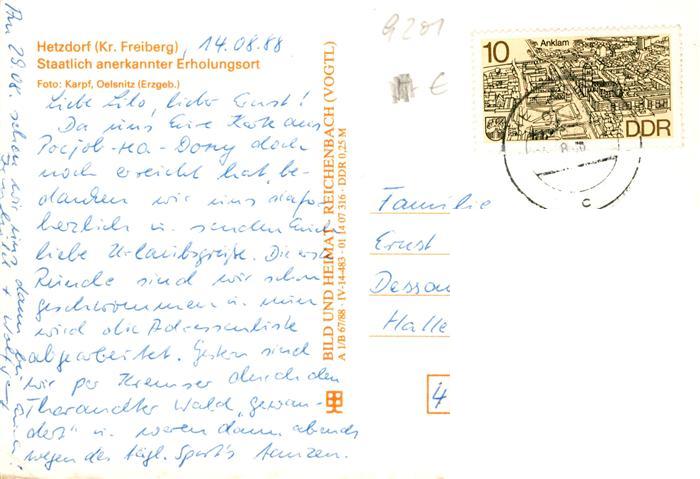 Hetzdorf (Kr. Freiberg), 14.08.88
Staatlich anerkannter Erholungsort
Foto: Karpf, Oelsnitz (Erzgeb.)
Liebe Lilo, lieber Ernst!
Da uns Eure Karte aus
Posjolok-na-Donu doch
noch erreicht hat, be-
danken wir uns
herzlich u. senden Euch
liebe Urlaubsgrüße. Die erste
Runde sind wir schon
geschwommen u. nun
wird die Adressenliste
abgearbeitet. Gestern sind
wir per Kremser durch den
Tharandter Wald „gewan-
dert“ u. waren dann abends
wegen des tägl. Sport's tanzen.
Am 29.08. schon wir uns dann bei
+ Wolfgang
BILD UND HEIMAT REICHENBACH (VOGTL)
A 1/B 67/88 · IV-14-483 · 01 14 07 316 · DDR 0,25 M
G 201
€
10
Anklam
DDR
c
Familie
Ernst
Dessau
Halle
4